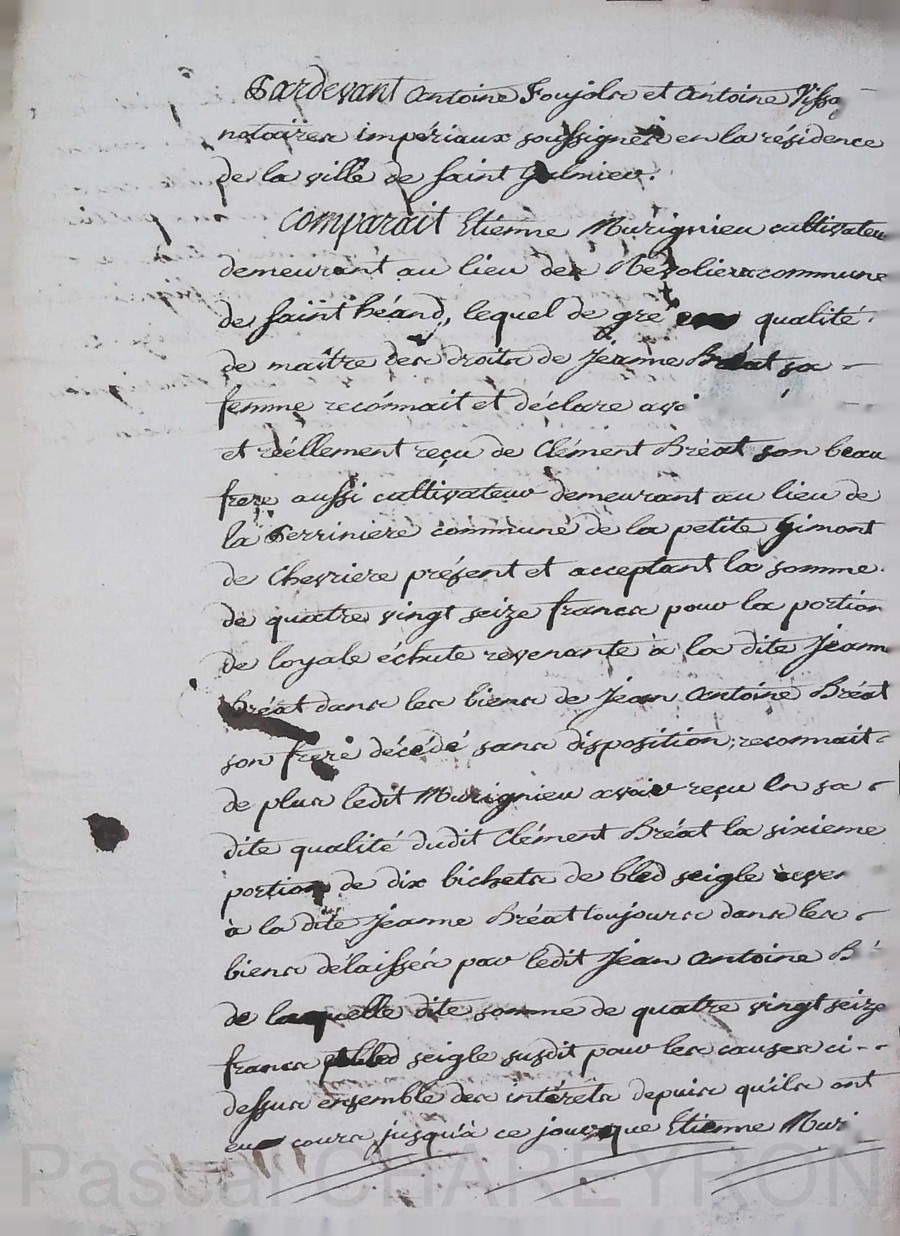 Pardevant Antoine Foujols et Antoine
notaires impériaux soussignés en la résidence
de la ville de Saint Galmier.
Comparait Etienne Murignieu cultivateur
demeurant au lieu des commune
de saint héand, lequel de gré en qualité
de maître des droits de Jeanne Bréat sa
femme reconnait et déclare avoi
et réellement reçu de Clément Bréat son beau
frere aussi cultivateur demeurant au lieu de
la Perriniere commune de la petite Gimont
de Chevriere présent et acceptant la somme
de quatre vingt seize francs pour la portion
de loyale échute revenante à la dite Jeanne
Bréat dans les biens de Jean Antoine Bréat
son frere décédé sans disposition; reconnait
de plus ledit Murignieu avoir reçu en sa
dite qualité dudit Clément Bréat la sixieme
portion de dix bichets de bled seigle
à la dite Jeanne Bréat toujours dans les
biens délaissés par ledit Jean Antoine Bré
de laquelle dite somme de quatre vingt seize
francs et bled seigle susdit pour les causes ci-
dessus ensemble des intérets depuis qu'ils ont
eu cours jusqu'à ce jour que Etienne Muri
Pascal CHAREYRON